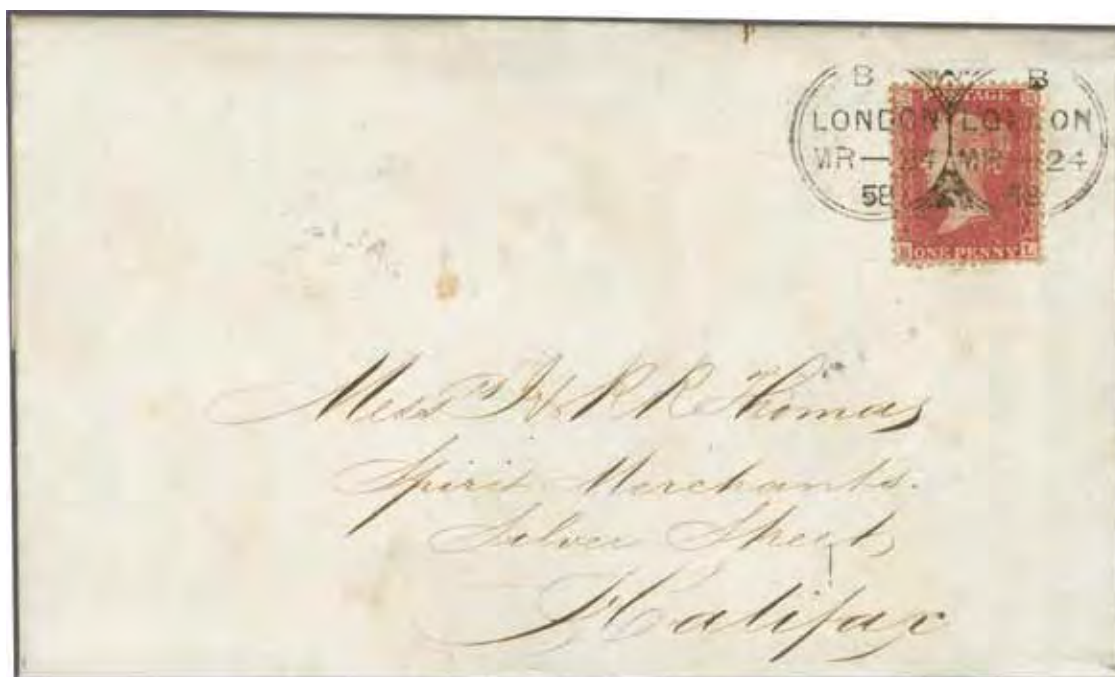 B B
LONDON LON ON
MR—24 MR—24
58 58
POSTAGE
ONE PENNY L
Mess.rs R R Thomas
Spirit Merchants.
Silver Street,
Halifax